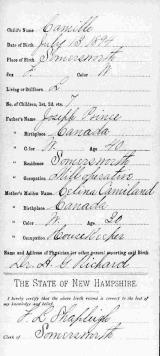 Child's Name Camille
Date of Birth July 13, 1894
Place of Birth Somersworth
Sex F Color W
Living or Stillborn L
No. of Children, 1st, 2d, etc. 7
Father's Name Joseph Prince
" Birthplace Canada
" Color W. Age 40
" Residence Somersworth
" Occupation Mill operative
Mother's Maiden Name Celina
" Birthplace Canada
" Color W. Age 30
" Occupation Housekeeper
Name and Address of Physician (or other person) reporting said Birth
Dr. A. G. Richard
THE STATE OF NEW HAMPSHIRE.
I hereby certify that the above birth record is correct to the best of my knowledge and belief.
F. L. Shapleigh
Clerk of Somersworth